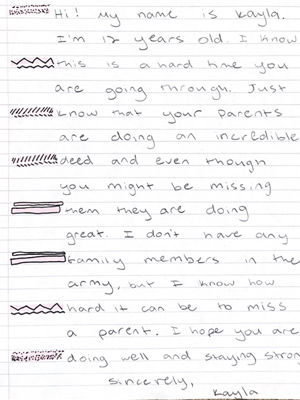 Hi! My name is Kayla.
I'm 12 years old. I know
this is a hard time you
are going through. Just
know that your parents
are doing an incredible
deed and even though
you might be missing
them they are doing
great. I don't have any
family members in the
army, but I know how
hard it can be to miss
a parent. I hope you are
doing well and staying strong
sincerely,
Kayla